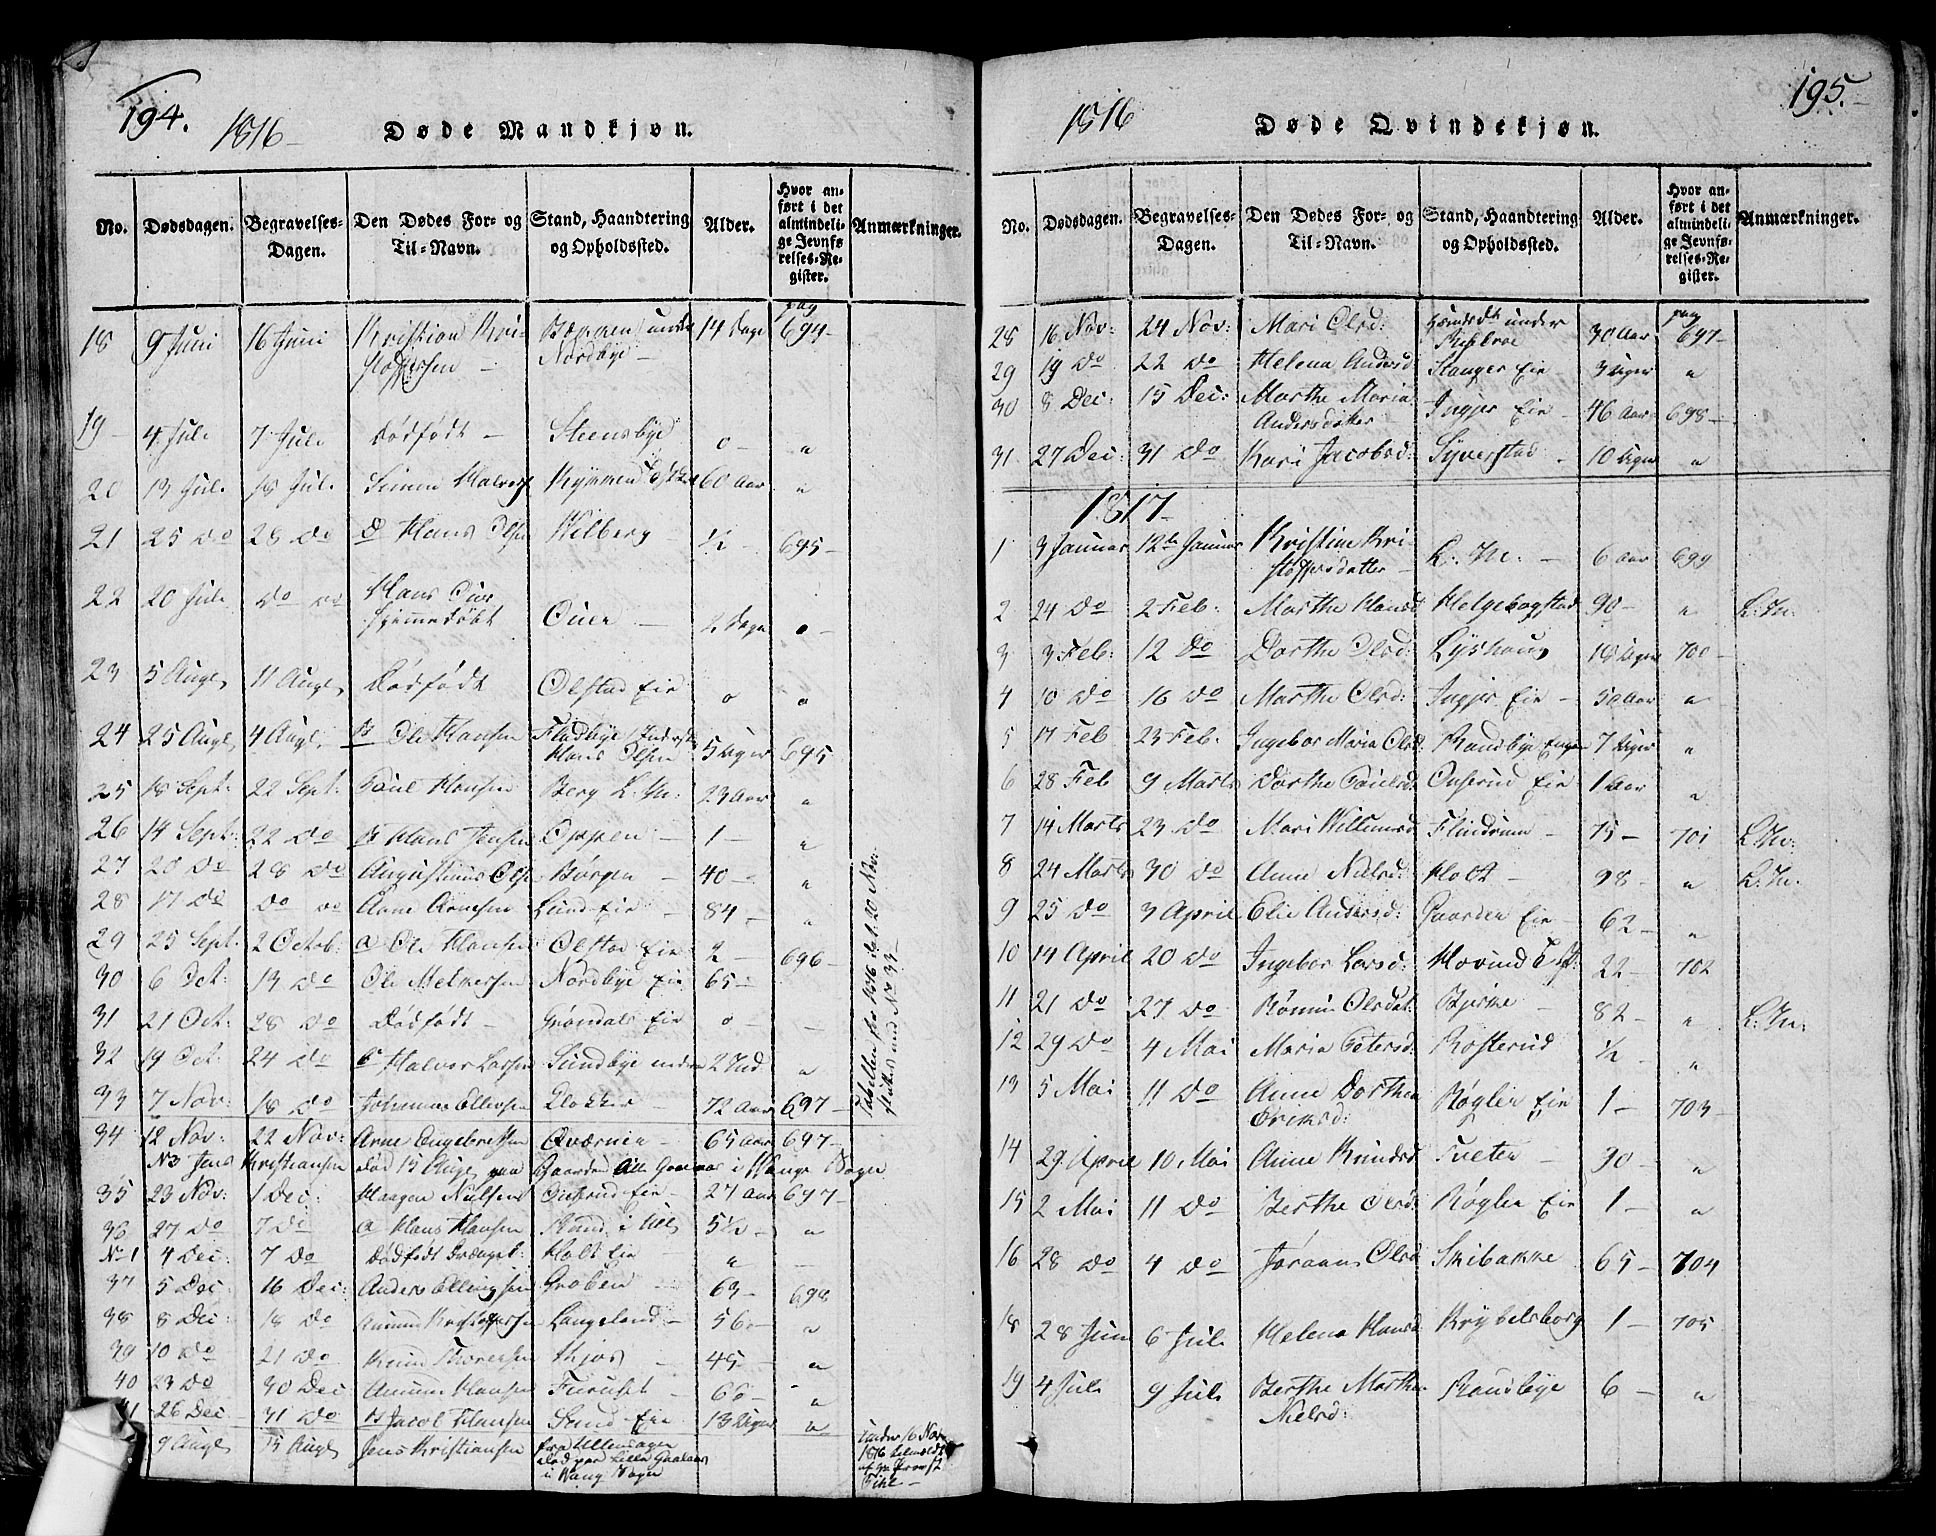 194.
1816
Døde Mandkjøn.
No. Dødsdagen. Begravelses-Dagen. Den Dødes For- og Til-Navn. Stand, Haandtering og Opholdssted. Alder. Hvor anført i det almindelige Jevnførelses-Register. Anmærkninger.
pag
18 9 Juni 16 Juni Kristian Kristoffersen under Nordbye 14 Dage 694
19 4 Juli 7 Juli Dödfödt Steensbye 0 "
20 13 Juli 18 Juli Simen Halvors 60 Aar "
21 25 do 28 do Hans Olsen Wilberg ½ 695
22 20 Juli do do Hans hjemmedøbt 2 Dage 0
23 5 Aug 11 Aug Dödfödt Olstad Eie 0 0
24 25 Aug 4 Aug Ole Hansen Fladbye Hans Olsen 5 Uger 695
25 18 Sept: 22 Sept: Paul Hansen Berg L. M: 23 Aar "
26 14 Sept: 22 do Hans Jensen Oppen 1 "
27 20 do 28 do Augustinus Olse Børgen 40 "
28 17 do do do Arne Arnesen Lund Eie 84 "
29 25 Sept: 2 Octob: a Ole Hansen Olstad Eie 2 696
30 6 Oct: 13 do Ole Nordbye Eie 65
31 21 Oct: 28 do Dödfödt Grøndals Eie 0
32 19 Oct: 24 do Halvor Larsen Sundbye 2 "
33 7 Nov: 18 do Johannes Ellevsen Klokker 72 Aar 697
34 12 Nov: 22 Nov: Arne Engebretsen Qværnen 65 Aar 697
N3 Jens Kristiansen död 15 Aug: paa Gaarden i Wangs Sogn
35 23 Nov: 1 Dec: Haagen Nielsen Eie 27 Aar 697
36 27 do 7 do a Hans Hansen 5½ "
No 1 4 Dec: 7 do Dödfödt Holt Eie "
37 5 Dec 16 Dec: Anders Ellingsen Groben 63 698
38 8 Dec: 18 do Langeland 56 "
39 10 do 21 do Knud Thoresen 45 "
40 23 do 30 Dec Hansen Furuset 66 "
41 26 Dec 31 do Jacob Hansen Sund Eie 13 Uger "
9 Aug 15 Aug Jens Kristiansen fra Ullensager död paa Lille i Wang Sogn
Tabellen for 1816 dat. 20 Nov: sluttes med No 33
under 16 Nov 1816 anmeldt af Hr Provst
195.
1816
Døde Qvindekjøn.
No. Dødsdagen. Begravelses-Dagen. Den Dødes For- og Til-Navn. Stand, Haandtering og Opholdssted. Alder. Hvor anført i det almindelige Jevnførelses-Register. Anmærkninger.
pag
28 16 Nov: 24 Nov: Mari Olsd: under 30 Aar 697
29 19 do 22 do Helena Andersd Stanger Eie 3 Uger "
30 8 Dec: 15 Dec: Marthe Maria Andersdatter Ingjer Eie 46 Aar 698
31 27 Dec: 31 do Kari Jacobsd: Syverstad 10 Uger "
1817
1 3 Januar 12te Januar Kristine Kristoffersdatter L: M: 6 Aar 699
2 24 do 2 Feb: Marthe Hansd Helgebogstad 90 " L: M:
3 3 Feb: 12 do Dorthe Olsd: Lyshoug 18 Uger 700
4 10 do 16 do Marthe Olsd: Ingjer Eie 50 Aar "
5 17 Feb 23 Feb: Ingebor Maria Olsd Randbye Engen 7 Uger "
6 28 Feb 9 Marts Dorthe Poulsd: Onserud Eie 1 Aar "
7 14 Marts 23 do Mari Willumsd Flindrum 75 701 L: M:
8 24 Marts 30 do Anne Nielsd: Holt 98 " L: M:
9 25 do 3 April Elie Andersd: Gaarder Eie 62 "
10 14 April 20 do Ingebor Larsd: Hovind 22 702
11 21 do 27 do Rønnu Olsdat: Bjerke 82 " L: M:
12 29 do 4 Mai Maria Petersd: Rosterud ½ "
13 5 Mai 11 do Anne Dorthea Eriksd: Røgler Eie 1 703
14 29 April 10 Mai Anne Knudsd: Tveter 90 "
15 2 Mai 11 do Berthe Olsd: Røgler Eie 1 "
16 28 do 4 do Jøraan Olsd Skibakke 65 704
18 28 Juni 6 Juli Helena Hansd Krybelsborg 1 705
19 4 Juli 9 Juli Berthe Marthea Nielsd: Randbye 6 "